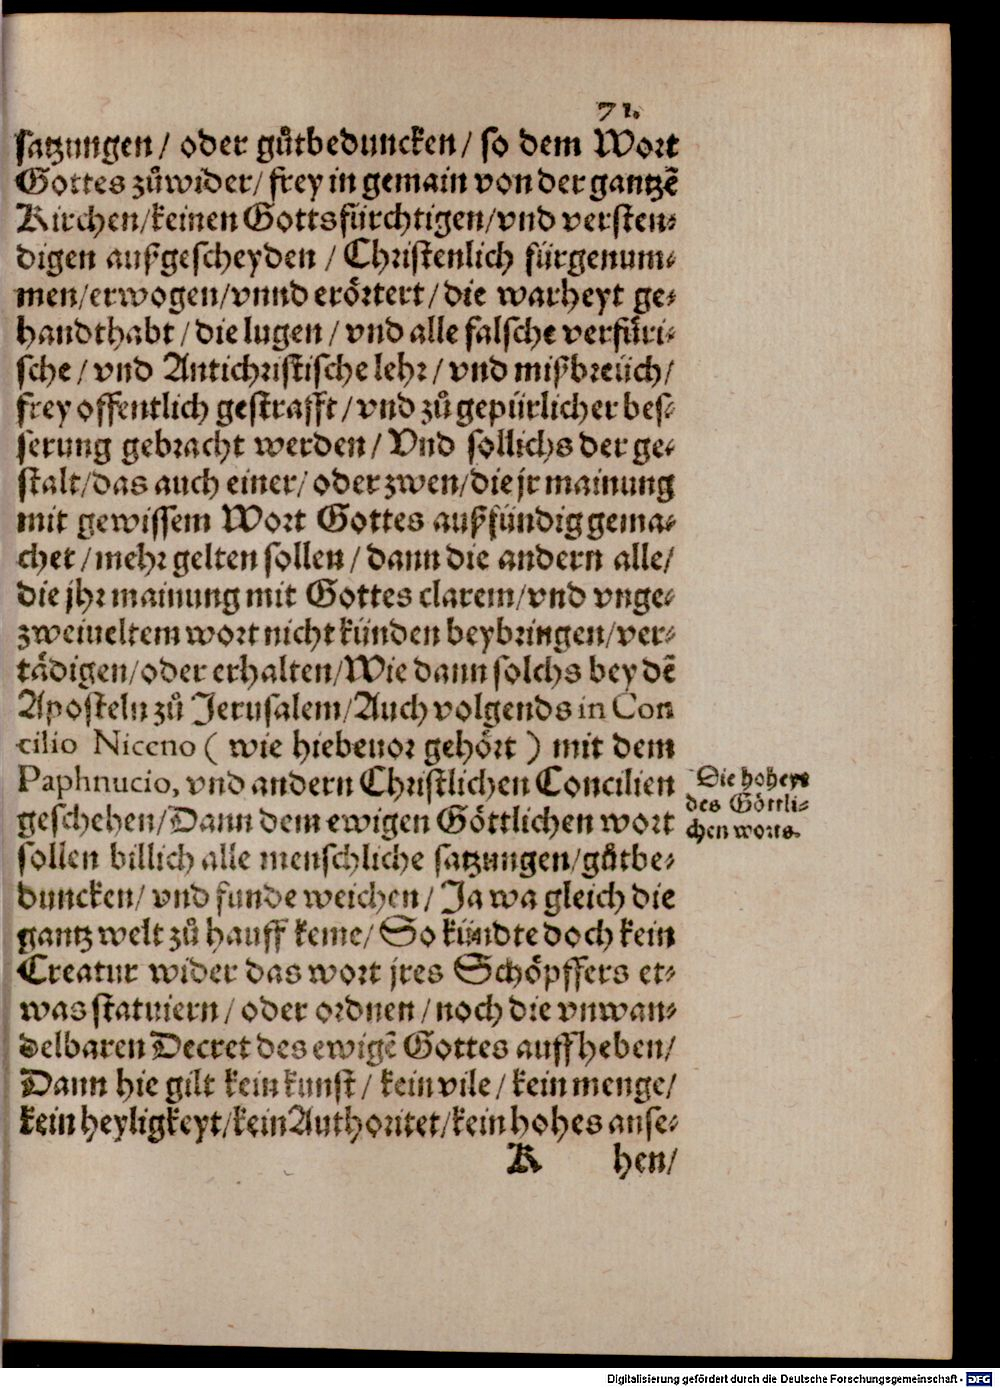 71.
satzungen / oder gůtbeduncken / so dem Wort
Gottes zůwider / frey in gemain von der gantzē
Kirchen / keinen Gottsfürchtigen / vnd versten⸗
digen außgescheyden / Christenlich fürgenum⸗
men / erwogen / vnnd erörtert / die warheyt ge⸗
handthabt / die lugen / vnd alle falsche verfüri⸗
sche / vnd Antichristische lehr / vnd mißbreüch /
frey offentlich gestrafft / vnd zů gepürlicher bes⸗
serung gebracht werden / Vnd sollichs der ge⸗
stalt / das auch einer / oder zwen / die jr mainung
mit gewissem Wort Gottes außfündig gema⸗
chet / mehr gelten sollen / dann die andern alle /
die jhr mainung mit Gottes clarem / vnd vnge⸗
zweiueltem wort nicht künden beybringen / ver⸗
tädigen / oder erhalten / Wie dann solchs bey dē
Aposteln zů Jerusalem / Auch volgends in Con
cilio Niceno ( wie hieb​euor gehört ) mit dem
Paphnucio, vnd andern Christlichen Concilien
geschehen / Dann dem ewigen Göttlichen wort
sollen billich alle menschliche satzungen / gůtbe⸗
duncken / vnd funde weichen / Ja wa gleich die
gantz welt zů hauff keme / So kündte doch kein
Creatur wider das wort jres Schöpffers et⸗
was statuiern / oder ordnen / noch die vnwan⸗
delbaren Decret des ewigē Gottes auffheben /
Dann hie gilt kein kunst / kein vile / kein menge /
kein heyligkeyt / kein Authoritet / kein hohes anse⸗
K hen /
Die hoheyt
des Göttli⸗
chen worts.
Digitalisierung gefördert durch die Deutsche Forschungsgemeinschaft - DFG